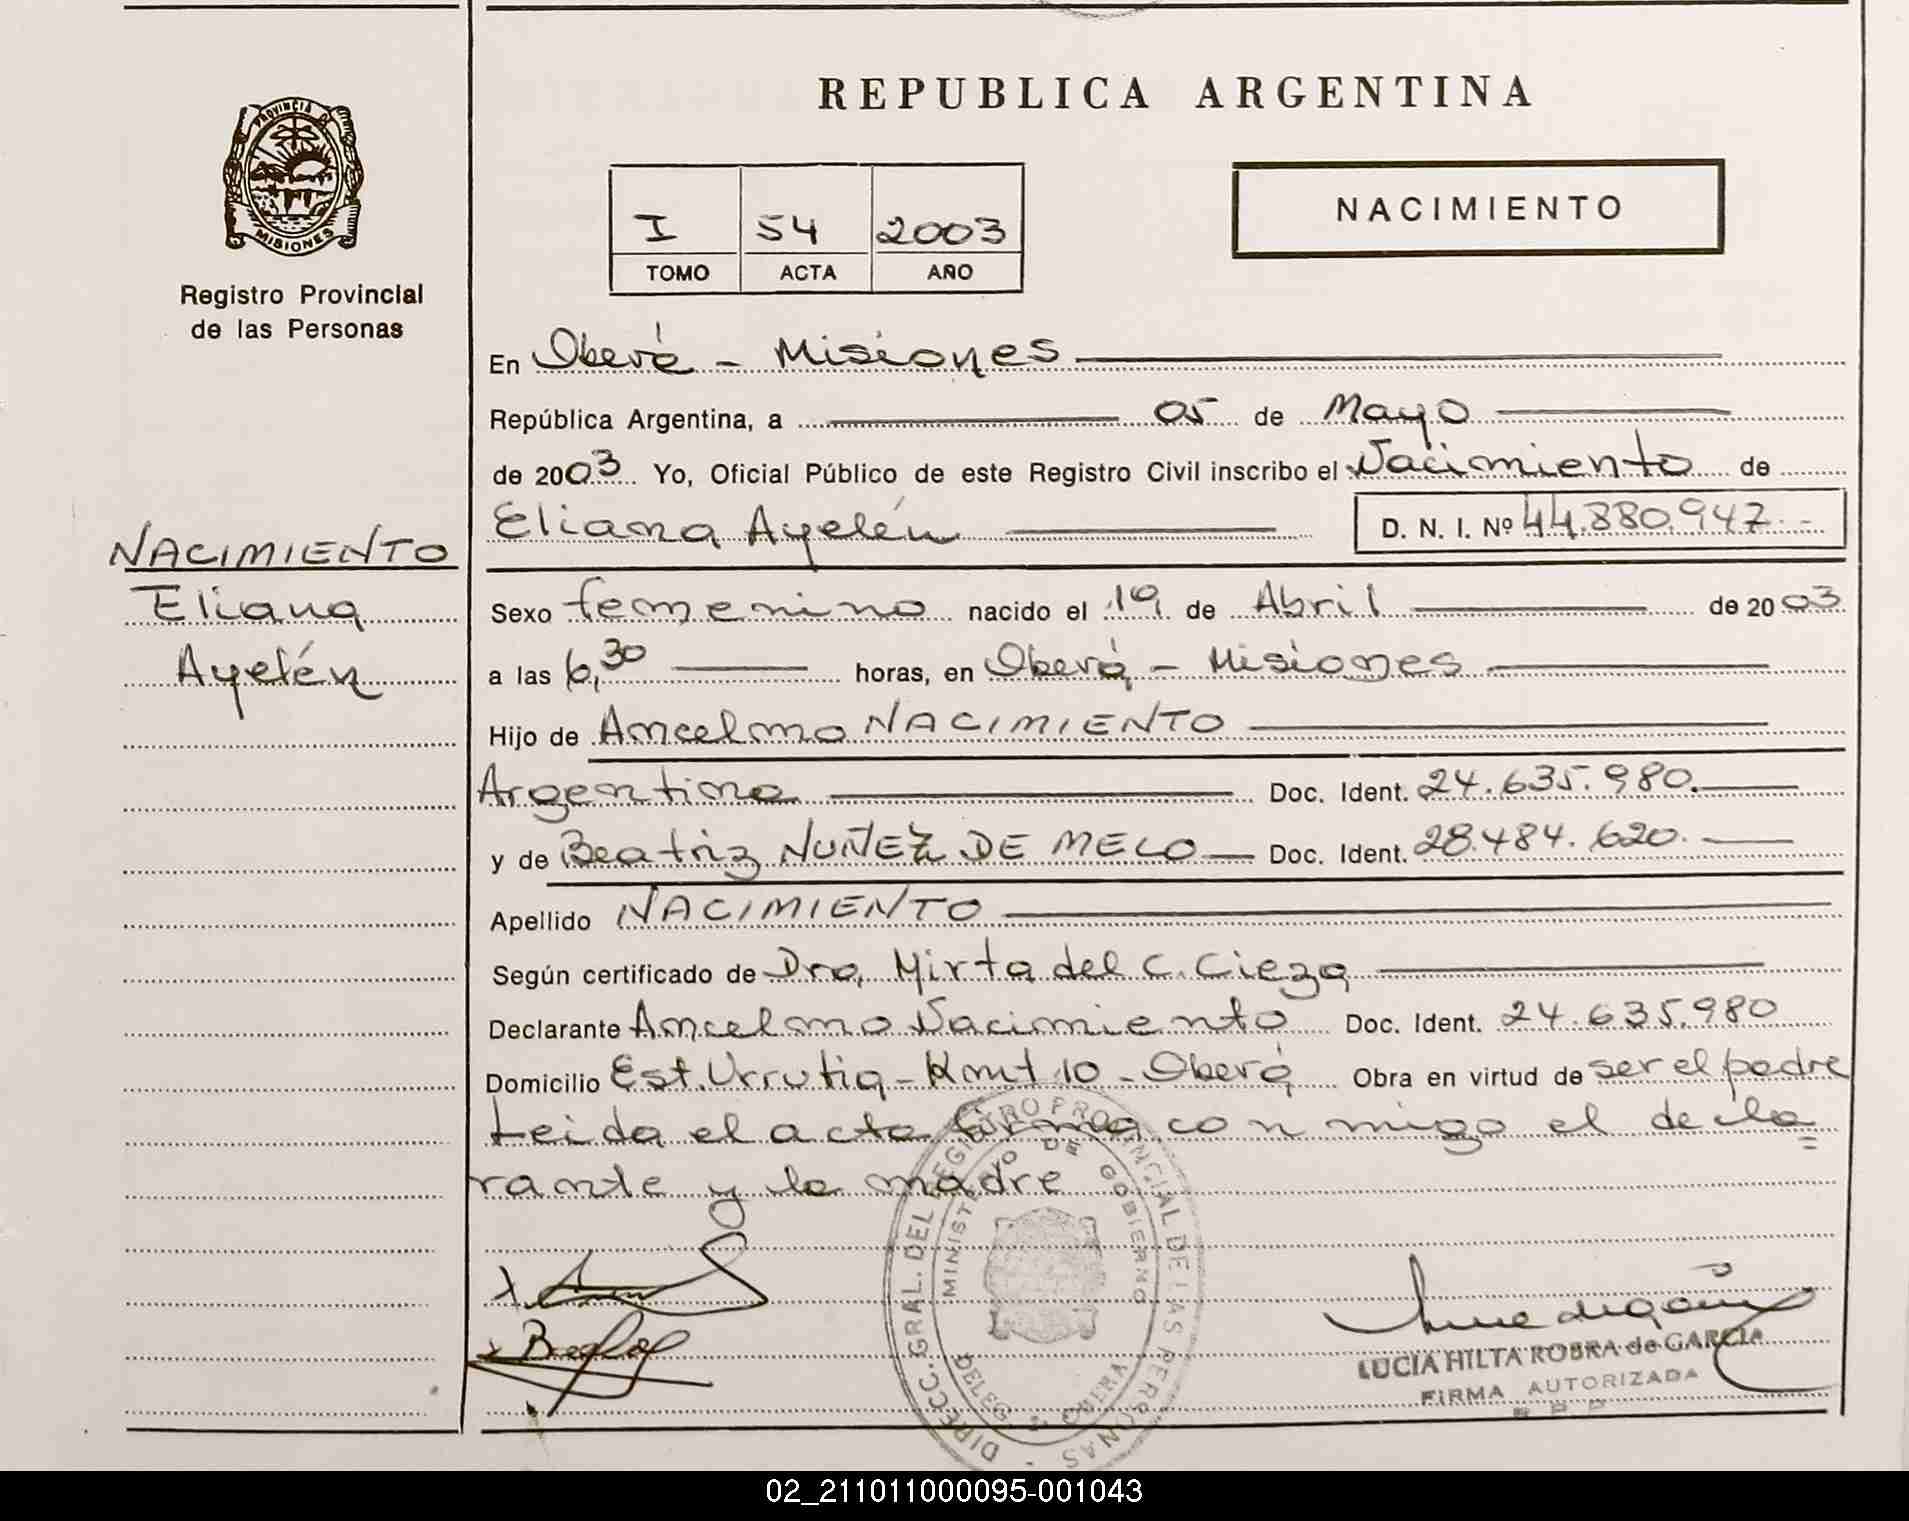 REPUBLICA ARGENTINA
PROVINCIA DE
MISIONES
Registro Provincial
de las Personas
I 54 2003
TOMO ACTA AÑO
NACIMIENTO
En Oberá - Misiones
República Argentina, a 05 de Mayo
de 2003 Yo, Oficial Público de este Registro Civil inscribo el Nacimiento de
Eliana Ayelén D. N. I. Nº 44.880.947.-
NACIMIENTO
Eliana
Ayelén
Sexo femenino nacido el 19 de Abril de 2003
a las 6,30 horas, en Oberá - Misiones
Hijo de Ancelmo NACIMIENTO
Argentino Doc. Ident. 24.635.980.
y de Beatriz NUÑEZ DE MELO Doc. Ident. 28.484.620.
Apellido NACIMIENTO
Según certificado de Dra. Mirta del C. Cieza
Declarante Ancelmo Nacimiento Doc. Ident. 24.635.980
Domicilio Est. Urrutia - Kmt 10 - Oberá Obra en virtud de ser el padre
Leida el acta firma conmigo el decla=
rante y la madre
DIRECC. GRAL. DEL REGISTRO PROVINCIAL DE LAS PERSONAS
MINISTERIO DE GOBIERNO
DELEG. OBERA
LUCIA HILTA ROBRA de GARCIA
FIRMA AUTORIZADA
02_211011000095-001043